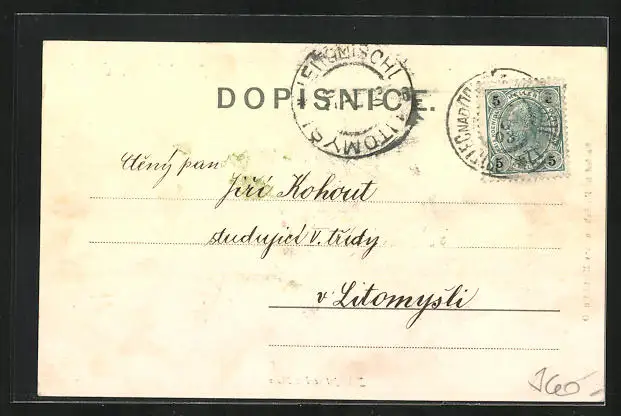 DOPISNICE.
LEITOMISCHL
LITOMYŠL
5 5
5 5
Ctěný pan
Jiří Kohout
studující V. třídy
v Litomyšli
160